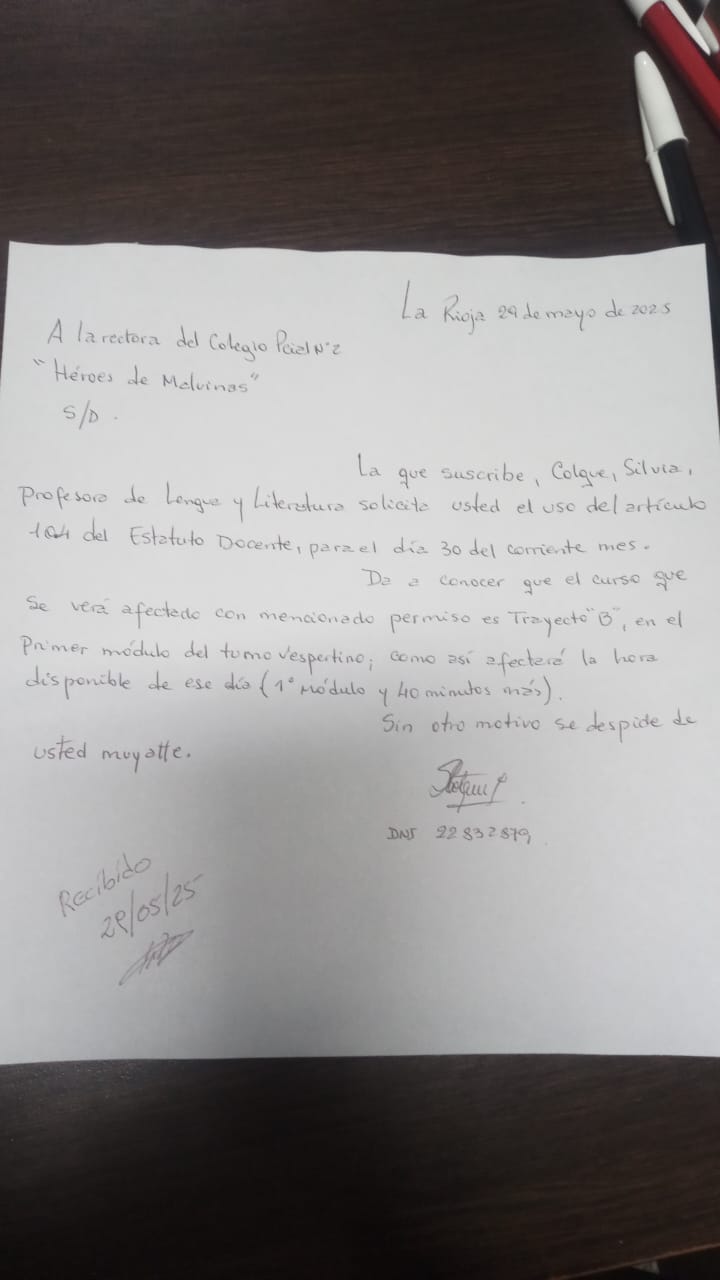 La Rioja 29 de mayo de 2025
A la rectora del Colegio Pcial N°2
"Héroes de Malvinas"
S/D.
La que suscribe, Colque, Silvia,
Profesora de Lengua y Literatura solicita usted el uso del artículo
104 del Estatuto Docente, para el día 30 del corriente mes.
Da a conocer que el curso que
se verá afectado con mencionado permiso es Trayecto "B", en el
Primer módulo del turno vespertino; como así afectará la hora
disponible de ese día (1° Módulo y 40 minutos más).
Sin otro motivo se despide de
usted muy atte.
DNI 22832879
Recibido
29/05/25